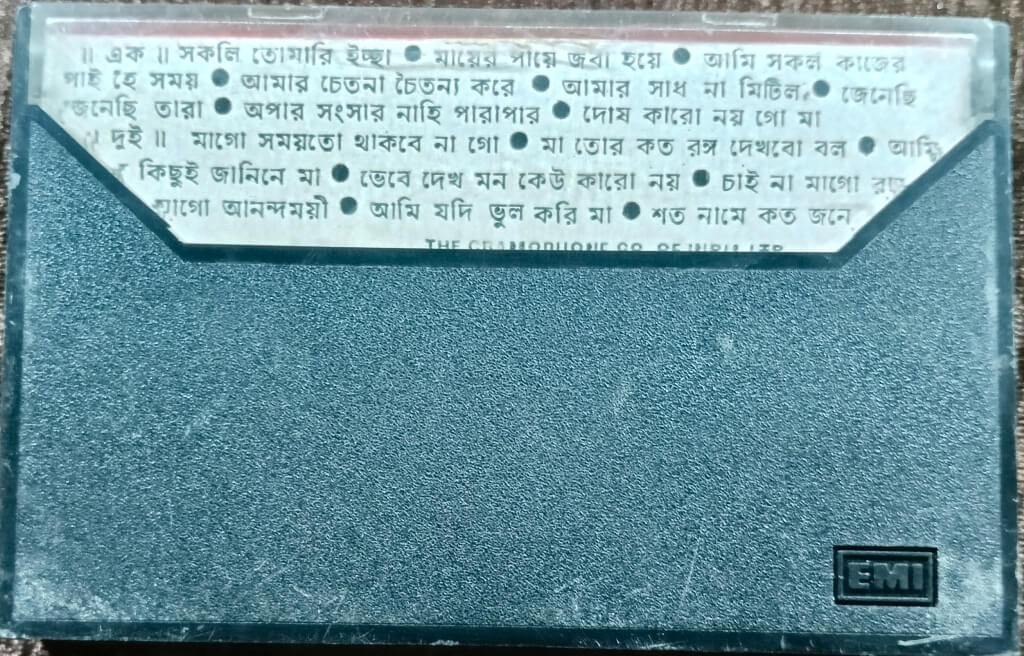 ॥ এক ॥ সকলি তোমারি ইচ্ছা ● মায়ের পায়ে জবা হয়ে ● আমি সকল কাজের
পাই হে সময় ● আমার চেতনা চৈতন্য করে ● আমার সাধ না মিটিল ● জেনেছি
জেনেছি তারা ● অপার সংসার নাহি পারাপার ● দোষ কারো নয় গো মা
॥ দুই ॥ মাগো সময়তো থাকবে না গো ● মা তোর কত রঙ্গ দেখবো বল ● আমি
কিছুই জানিনে মা ● ভেবে দেখ মন কেউ কারো নয় ● চাই না মাগো
মাগো আনন্দময়ী ● আমি যদি ভুল করি মা ● শত নামে কত জনে
THE GRAMOPHONE CO. OF INDIA LTD
EMI